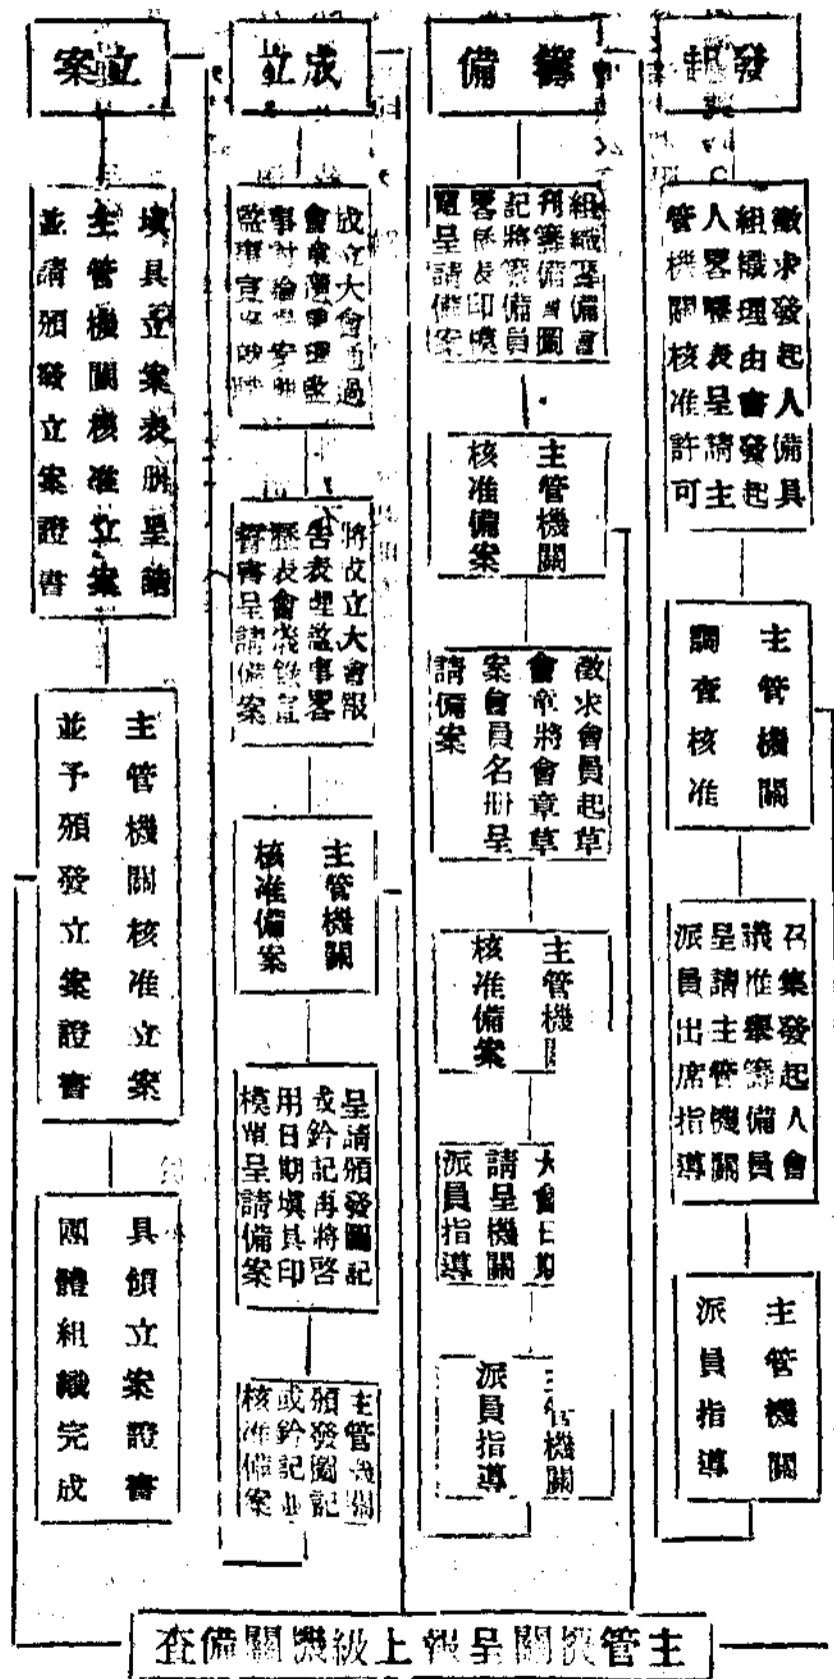 發起
徵求發起人備具
組織理由書發起
人畧歷表呈請主
管機關核准許可
主管機關
調查核准
召集發起人會
議推舉籌備員
呈請主管機關
派員出席指導
主管機關
派員指導
籌備
組織籌備會
刊籌備會圖
記將籌備員
畧歷表印模
單呈請備案
主管機關
核准備案
徵求會員起草
會章將會章草
案會員名冊呈
請備案
主管機關
核准備案
大會日期
請呈機關
派員指導
主管機關
派員指導
成立
成立大會通過
會章選舉理監
事討論提案
監事宣
將成立大會報
告表理監事畧
歷表會議錄宣
誓書呈請備案
主管機關
核准備案
呈請頒發圖記
或鈐記再將啓
用日期填具印
模單呈請備案
主管機關
頒發圖記
或鈐記並
核准備案
立案
填具立案表冊呈請
主管機關核准立案
並請頒發立案證書
主管機關核准立案
並予頒發立案證書
具領立案證書
團體組織完成
主管機關呈報上級機關備查